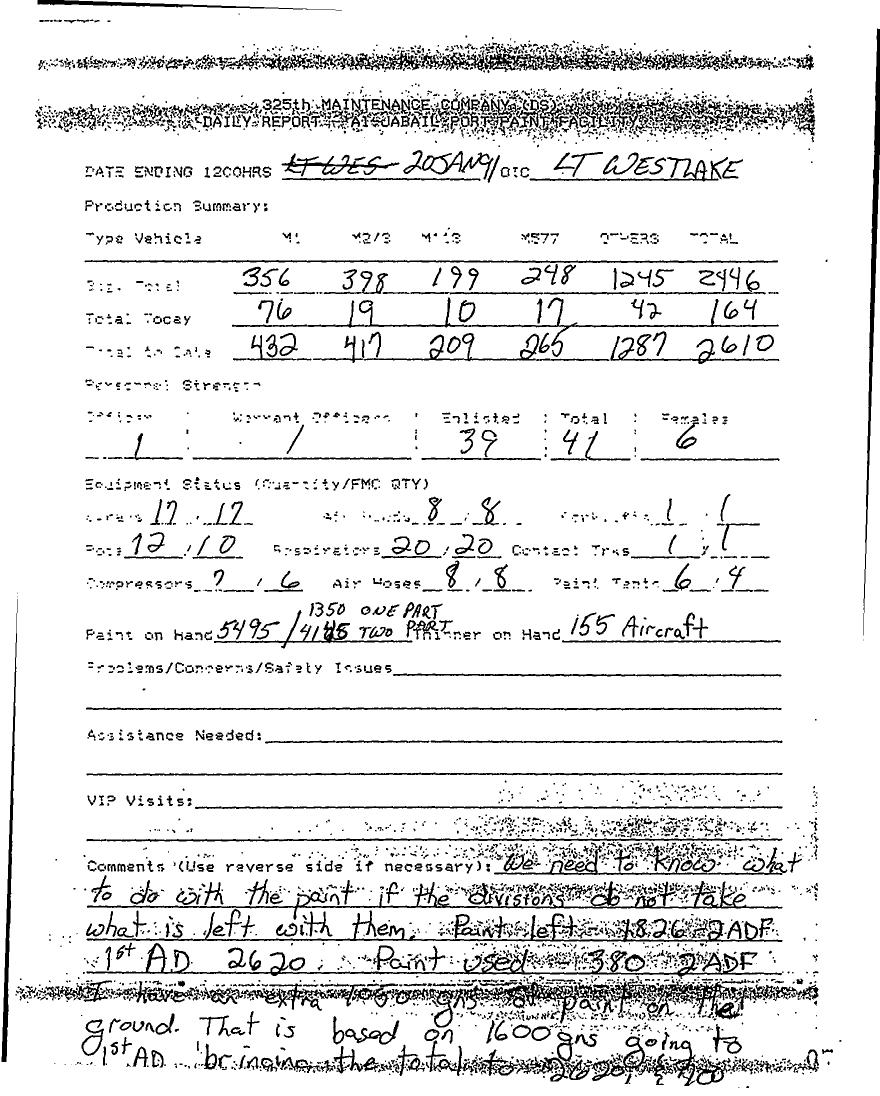 325th MAINTENANCE COMPANY (DS)
DAILY REPORT AL JABAIL PORT PAINT FACILITY
DATE ENDING 1200HRS LT WES 20JAN91 OIC LT WESTLAKE
Production Summary:
Type Vehicle M1 M2/3 M113 M577 OTHERS TOTAL
Total 356 398 199 248 1245 2446
Total Today 76 19 10 17 42 164
Total to Date 432 417 209 265 1287 2610
Personnel Strength
Officer Warrant Officers Enlisted Total Females
1 1 39 41 6
Equipment Status (Quantity/FMC QTY)
17 / 17 8 / 8 1 / 1
Pots 12 / 10 Respirators 20 / 20 Contact Trks 1 / 1
Compressors 7 / 6 Air Hoses 8 / 8 Paint Tents 6 / 4
1350 ONE PART
Paint on Hand 5495 / 4145 TWO PART Thinner on Hand 155 Aircraft
Problems/Concerns/Safety Issues
Assistance Needed:
VIP Visits:
Comments (Use reverse side if necessary): We need to know what
to do with the paint if the divisions do not take
what is left with them. Paint left 1826 2ADF
1st AD 2620. Paint used - 380 2ADF
I have an extra gns of paint on the
ground. That is based on 1600 gns going to
1st AD bringing the total to 2620, &